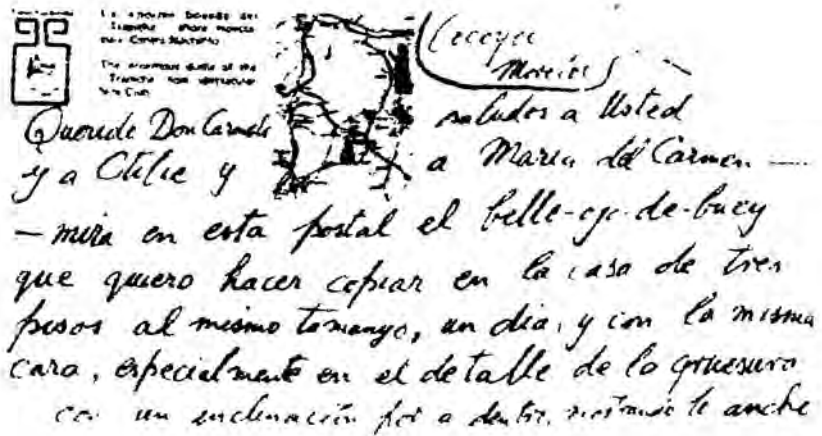 La enorme bóveda del
Trapiche ahora
The enormous vault of the
Trapiche
Morelos
Querido Don Carmelo saludos a Usted
y a Otilie y a Maria del Carmen —
— mira en esta postal el belle-ojo-de-buey
que quiero hacer copiar en la casa de tres
pisos al mismo tamanyo, un dia, y con la misma
cara, especialmente en el detalle de la gruesura
con un inclinación por a dentro, lo anche